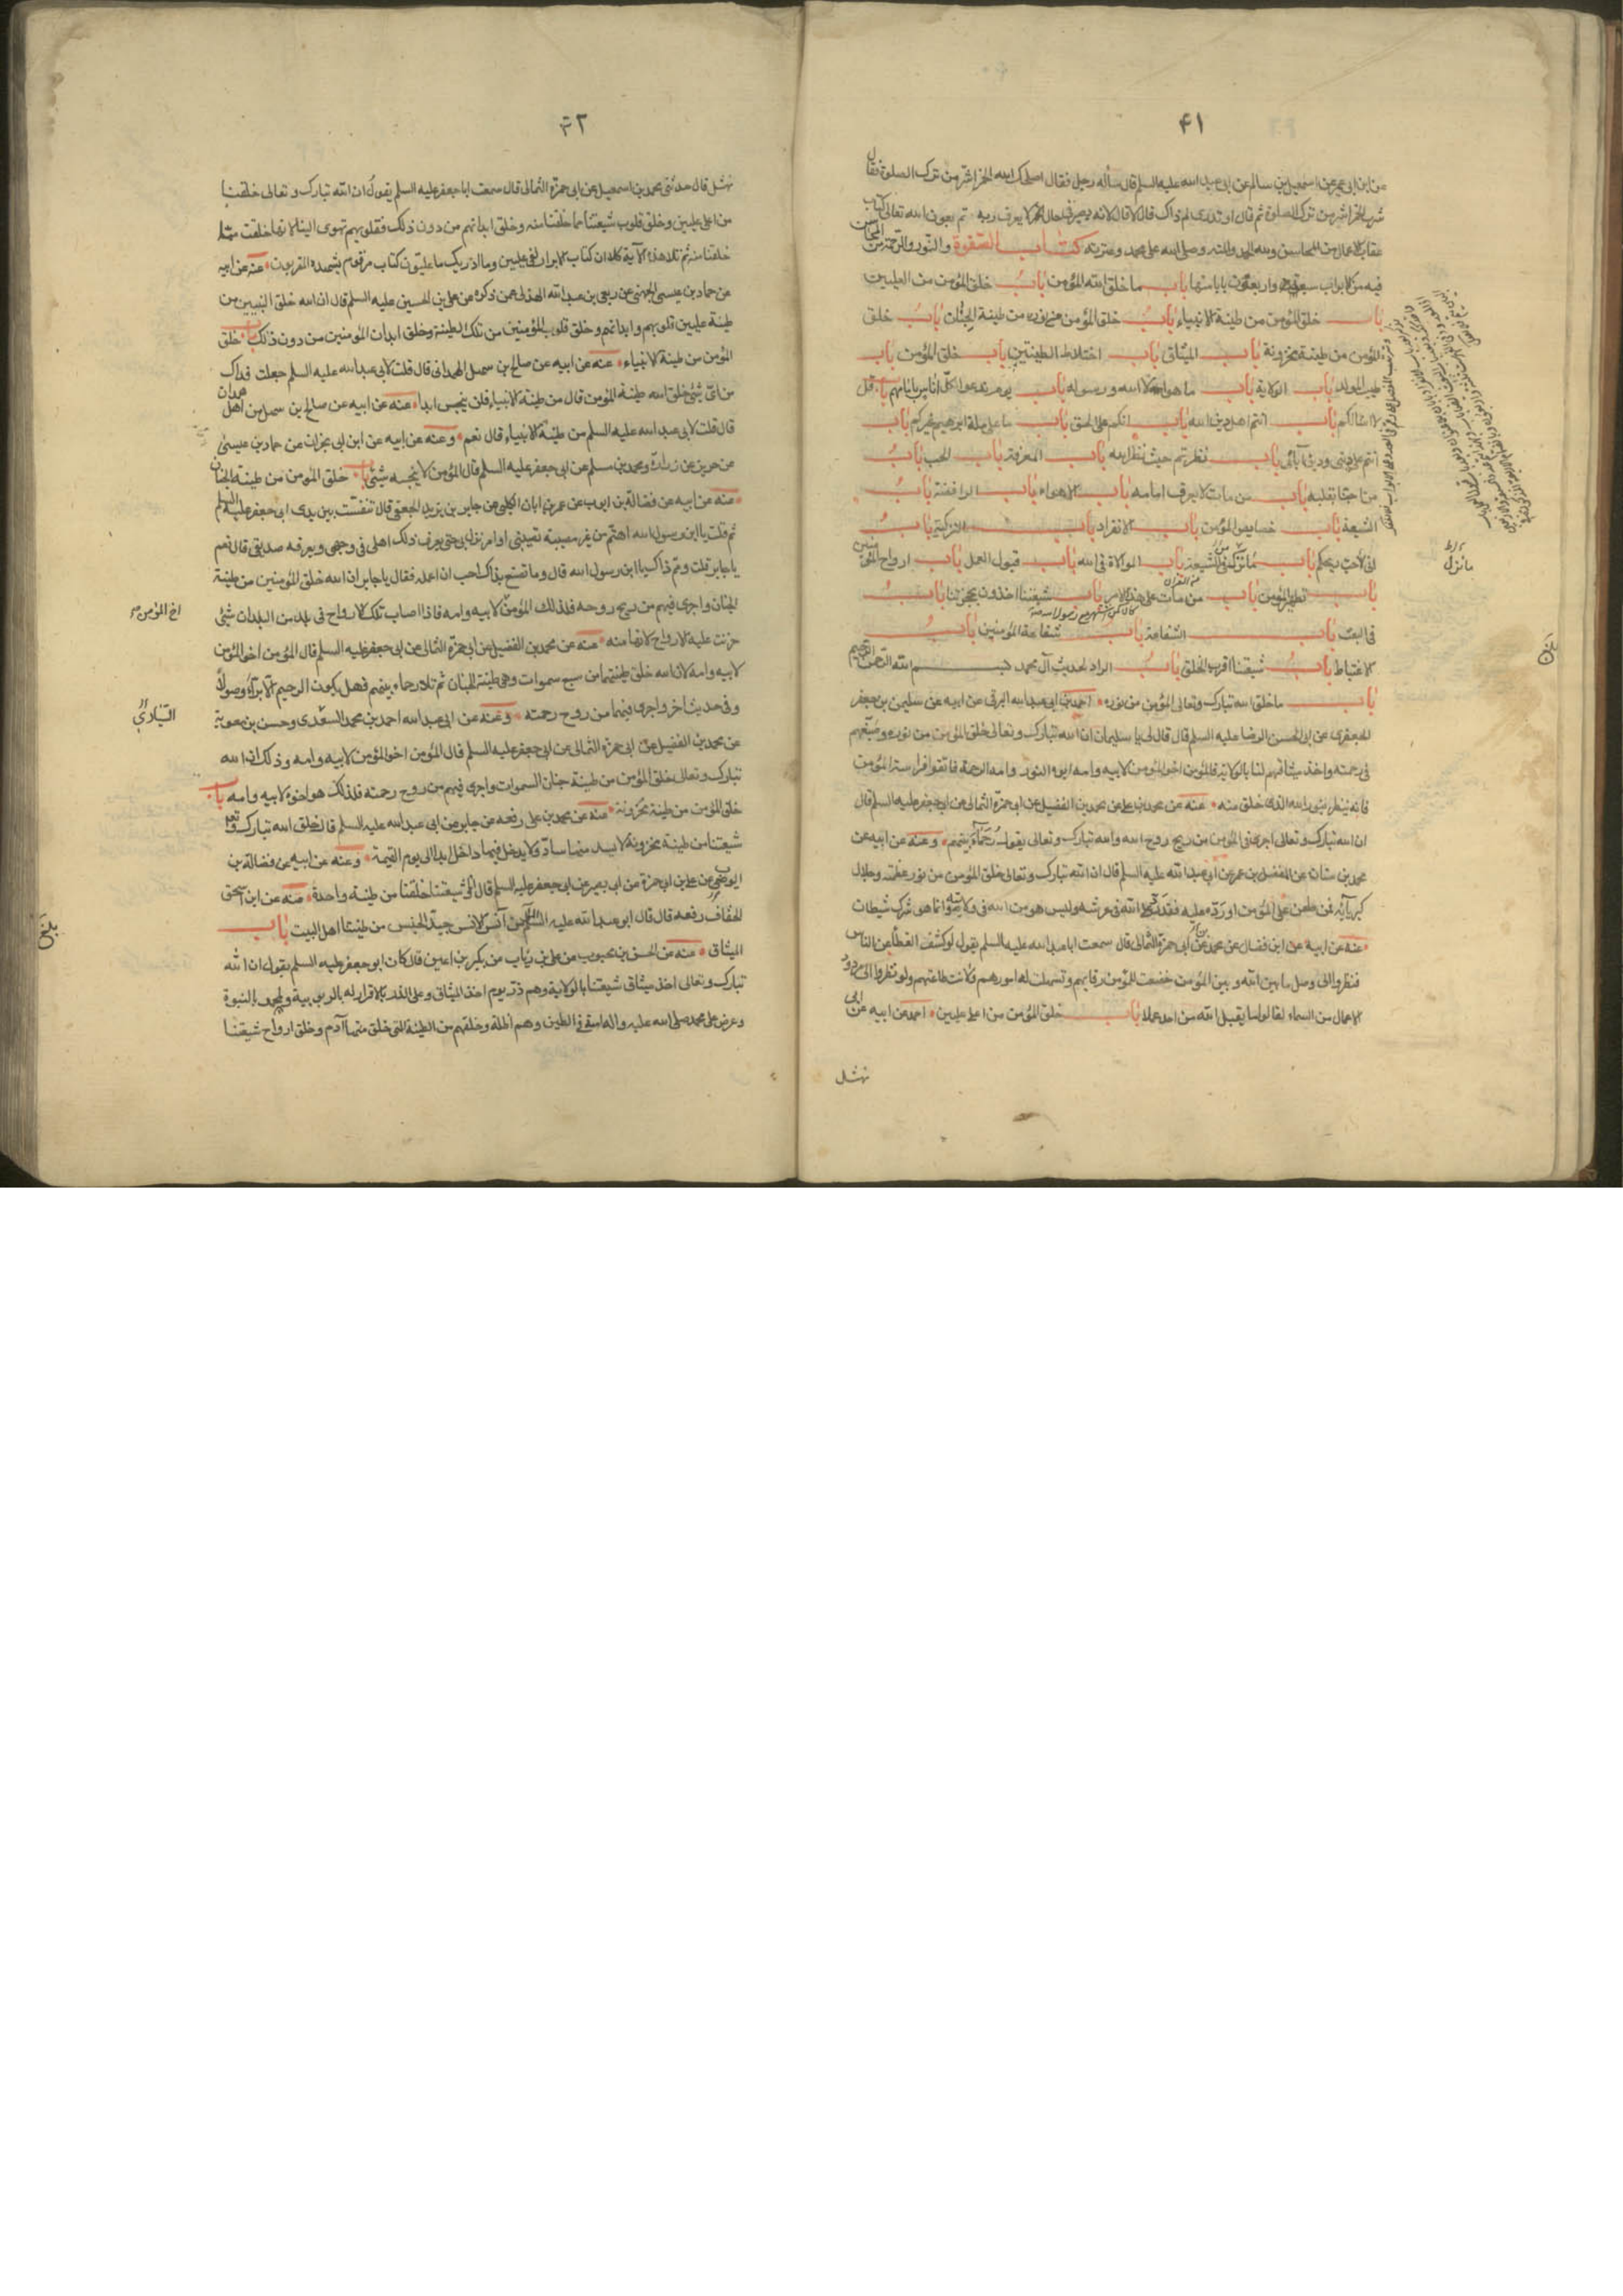 ۴۱
عن ابن ابى عمير عن اسمعيل بن سالم عن ابى عبد الله عليه السلم قال سأله رجل فقال اصلحك الله الخمر اشر من ترك الصلوة فقال
شرب الخمر اشر من ترك الصلوة ثم قال او تدرى لم ذاك قال لا قال لانه يصير فى حال لا يعرف ربه تم بعون الله تعالى كتاب
عقاب الاعمال من المحاسن ولله الحمد والمنه وصلى الله على محمد وعترته كتاب الصفوة والنور والرحمة من المحاسن
فيه من الابواب سبعة واربعون بابا منها باب ما خلق الله المؤمن باب خلق المؤمن من العليين
باب خلق المؤمن من طينة الانبياء باب خلق المؤمن من طينة الجنان باب خلق
المؤمن من طينة مخزونة باب الميثاق باب اختلاط الطينتين باب خلق المؤمن باب
طيب المولد باب الولاية باب ما هو الا الله ورسوله باب يوم ندعوا كل اناس بامامهم باب قل
لا اسالكم باب انتم اهل دين الله باب انكم على الحق باب ما على ملة ابرهيم غيركم باب
انتم على دينى ودين آبائى باب نظرتم حيث نظر الله باب المعرفة باب الحب باب
من احبنا بقلبه باب من مات لا يعرف امامه باب الاهواء باب الرافضة باب
الشيعة باب خصايص المؤمن باب الانفراد باب التزكية باب
انى لاحب ريحكم باب ما نزل فى الشيعة من القرآن باب الموالاة فى الله باب قبول العمل باب ارواح المؤمنين
باب تطهير المؤمن باب من مات على هذا الامر كان كمن استشهد مع رسول الله باب شيعتنا اخذون بحجزتنا باب
فى البعث باب الشفاعة باب شفاعة المؤمنين باب
الاغتباط باب شيعتنا اقرب الخلق باب الراد لحديث آل محمد بسم الله الرحمن الرحيم
باب ما خلق الله تبارك وتعالى المؤمن من نوره احمد بن ابى عبد الله البرقى عن ابيه عن سليمن بن جعفر
الجعفرى عن ابى الحسن الرضا عليه السلم قال قال لى يا سليمان ان الله تبارك وتعالى خلق المؤمن من نوره وصبغهم
فى رحمته واخذ ميثاقهم لنا بالولاية فالمؤمن اخو المؤمن لابيه وامه ابوه النور وامه الرحمة فاتقوا فراسة المؤمن
فانه ينظر بنور الله الذى خلق منه عنه عن محمد بن على عن محمد بن الفضيل عن ابى حمزة الثمالى عن ابى جعفر عليه السلم قال
ان الله تبارك وتعالى اجرى فى المؤمن من ريح روح الله والله تبارك وتعالى يقول رحماء بينهم وعنه عن ابيه عن
محمد بن سنان عن المفضل بن عمر عن ابى عبد الله عليه السلم قال ان الله تبارك وتعالى خلق المؤمن من نور عظمته وجلال
كبريآئه فمن طعن على المؤمن او رد عليه فقد رد الله فى عرشه وليس هو من الله فى ولاية وانما هو شرك شيطان
عنه عن ابيه عن ابن فضال عن محمد عن ابى حمزة الثمالى قال سمعت ابا عبد الله عليه السلم يقول لو كشف الغطآ عن الناس
فنظروا الى وصل ما بين الله وبين المؤمن خضعت للمؤمن رقابهم وتسهلت له امورهم ولانت طاعتهم ولو نظروا الى مردود
الاعمال من السماء لقالوا ما يقبل الله من احد عملا باب خلق المؤمن من اعلى عليين احمد عن ابيه عن ابى
نهشل
ما نزل
بلغ
نهشل قال حدثنى محمد بن اسمعيل عن ابى حمزة الثمالى قال سمعت ابا جعفر عليه السلم يقول ان الله تبارك وتعالى خلقنا
من اعلى عليين وخلق قلوب شيعتنا مما خلقنا منه وخلق ابدانهم من دون ذلك فقلوبهم تهوى الينا لانها خلقت مما
خلقنا منه ثم تلا هذه الآية كلا ان كتاب الابرار لفى عليين وما ادريك ما عليون كتاب مرقوم يشهده المقربون عنه عن ابيه
عن حماد بن عيسى الجهنى عن ربعى بن عبد الله الهذلى عمن ذكره عن على بن الحسين عليه السلم قال ان الله خلق النبيين من
طينة عليين قلوبهم وابدانهم وخلق قلوب المؤمنين من تلك الطينة وخلق ابدان المؤمنين من دون ذلك باب خلق
المؤمن من طينة الانبياء عنه عن ابيه عن صالح بن سهل الهمدانى قال قلت لابى عبد الله عليه السلم جعلت فداك
من اى شئ خلق الله طينة المؤمن قال من طينة الانبياء فلن ينجس ابدا عنه عن ابيه عن صالح بن سهل من اهل همدان
قال قلت لابى عبد الله عليه السلم من طينة الانبياء قال نعم وعنه عن ابيه عن ابن ابى نجران عن حماد بن عيسى
عن حريز عن زرارة ومحمد بن مسلم عن ابى جعفر عليه السلم قال المؤمن لا ينجسه شئ باب خلق المؤمن من طينة الجنان
عنه عن ابيه عن فضالة بن ايوب عن عمر بن ابان الكلبى عن جابر بن يزيد الجعفى قال تنفست بين يدى ابى جعفر عليه السلم
ثم قلت يا ابن رسول الله اهتم من غير مصيبة تصيبنى او امر نزل بى حتى يعرف ذلك اهلى فى وجهى ويعرفه صديقى قال نعم
يا جابر قلت ومم ذاك يا ابن رسول الله قال وما تصنع بذاك احب ان اعلمه فقال يا جابر ان الله خلق المؤمنين من طينة
الجنان واجرى فيهم من ريح روحه فلذلك المؤمن لابيه وامه فاذا اصاب تلك الارواح فى بلد من البلدان شئ
حزنت عليه الارواح لانها منه عنه عن محمد بن الفضيل عن ابى حمزة الثمالى عن ابى جعفر عليه السلم قال المؤمن اخو المؤمن
لابيه وامه لان الله خلق طينتهما من سبع سموات وهى طينة الجنان ثم تلا رحماء بينهم فهل يكون الرحيم الا برآ وصولا
وفى حديث اخر واجرى فيهما من روح رحمته وعنه عن ابى عبد الله احمد بن محمد السعدى وحسن بن معوية
عن محمد بن الفضيل عن ابى حمزة الثمالى عن ابى جعفر عليه السلم قال المؤمن اخو المؤمن لابيه وامه وذلك ان الله
تبارك وتعالى خلق المؤمن من طينة جنان السموات واجرى فيهم من روح رحمته فلذلك هو اخوه لابيه وامه باب
خلق المؤمن من طينة مخزونة عنه عن محمد بن على رفعه عن جابر عن ابى عبد الله عليه السلم قال خلق الله تبارك وتع
شيعتنا من طينة مخزونة لا يشذ منها شاذ ولا يدخل فيها داخل ابدا الى يوم القيمة وعنه عن ابيه عن فضالة بن
ايوب عن على بن ابى حمزة عن ابى بصير عن ابى جعفر عليه السلم قال انى وشيعتنا خلقنا من طينة واحدة عنه عن ابن اسحق
الخفاف رفعه قال قال ابو عبد الله عليه السلم المؤمن آنس الانس جيد الجنس من طينتنا اهل البيت باب
الميثاق عنه عن الحسن بن محبوب عن على بن رئاب عن بكير بن اعين قال كان ابو جعفر عليه السلم يقول ان الله
تبارك وتعالى اخذ ميثاق شيعتنا بالولاية وهم ذر يوم اخذ الميثاق على الذر بالاقرار له بالربوبية ولمحمد بالنبوة
وعرض على محمد صلى الله عليه واله امته فى الطين وهم اظلة وخلقهم من الطينة التى خلق منها آدم وخلق ارواح شيعتنا
اخ المؤمن
بلغ